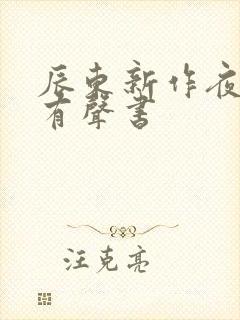 辰东新作夜
有聲書
汪克亮